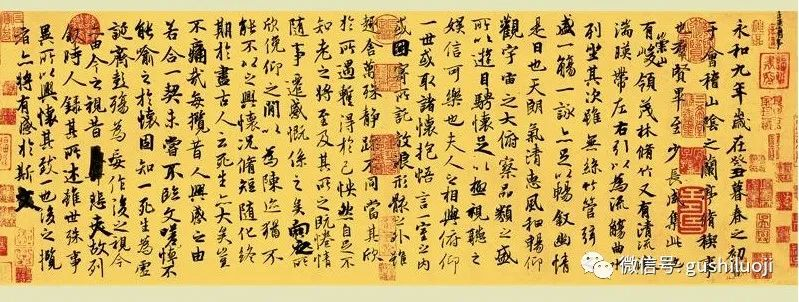 永和九年歲在癸丑暮春之初
于會稽山陰之蘭亭脩稧事
也羣賢畢至少長咸集此地
有崇山峻領茂林脩竹又有清流
湍暎帶左右引以為流觴曲水
列坐其次雖無絲竹管弦
盛一觴一詠亦足以暢敘幽情
是日也天朗氣清惠風和暢仰
觀宇宙之大俯察品類之盛
所以遊目騁懷足以極視聽之
娛信可樂也夫人之相與俯仰
一世或取諸懷抱悟言一室之內
或因寄所託放浪形骸之外雖
趣舍萬殊靜躁不同當其欣
於所遇蹔得於己怏然自足不
知老之將至及其所之既惓情
隨事遷感慨係之矣向之所
欣俛仰之閒以為陳迹猶不
能不以之興懷況脩短隨化終
期於盡古人云死生亦大矣豈
不痛哉每攬昔人興感之由
若合一契未嘗不臨文嗟悼不
能喻之於懷固知一死生為虛
誕齊彭殤為妄作後之視今
亦由今之視昔悲夫故列
敘時人錄其所述雖世殊事
異所以興懷其致一也後之攬
者亦將有感於斯文
微信号: gushiluoji